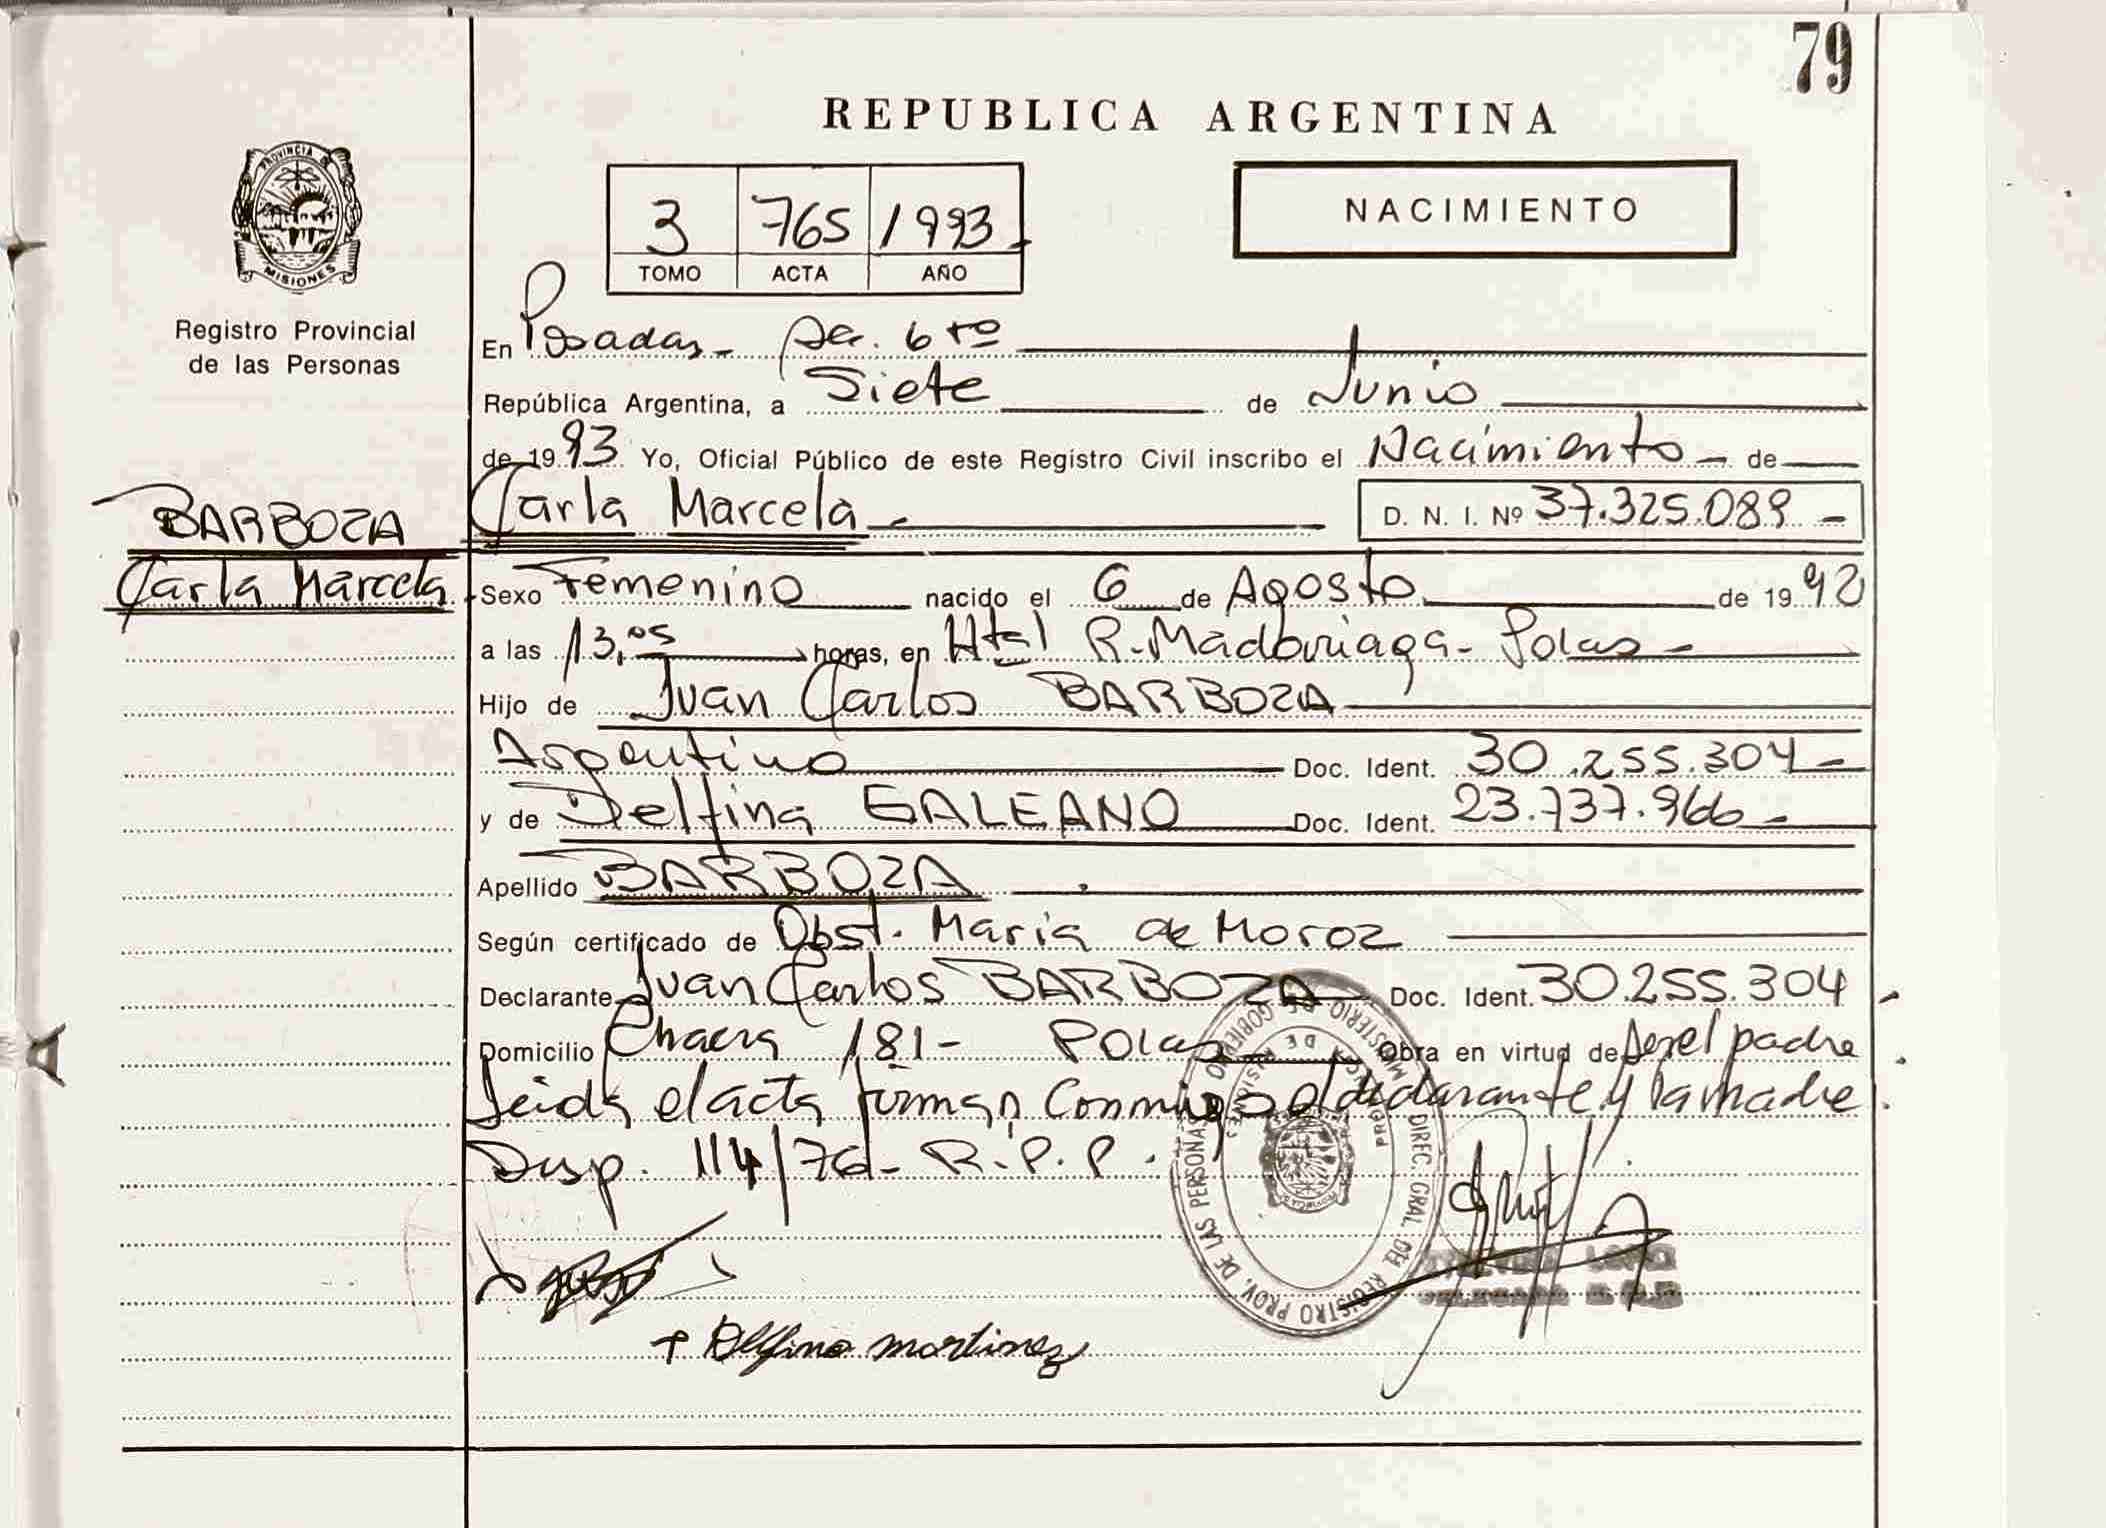 79
REPUBLICA ARGENTINA
PROVINCIA DE
MISIONES
Registro Provincial
de las Personas
3 765 1993
TOMO ACTA AÑO
NACIMIENTO
En Posadas - Sec. 6 to
República Argentina, a Siete de Junio
de 1993 Yo, Oficial Público de este Registro Civil inscribo el Nacimiento - de
Carla Marcela - D. N. I. Nº 37.325.089 -
BARBOZA
Carla Marcela
Sexo Femenino nacido el 6 de Agosto de 1992
a las 13,05 horas, en Htal R. Madariaga - Pdas -
Hijo de Juan Carlos BARBOZA
Argentino Doc. Ident. 30.255.304 -
y de Delfina GALEANO Doc. Ident. 23.737.966 -
Apellido BARBOZA
Según certificado de Obst. Maria de Moroz
Declarante Juan Carlos BARBOZA Doc. Ident. 30.255.304 -
Domicilio Chacra 181 - Pdas - Obra en virtud de ser el padre
Leida el acta firman Conmigo el declarante y la madre.
Disp. 114/76 - R.P.P.
DIREC. GRAL. DEL REGISTRO PROV. DE LAS PERSONAS
MINISTERIO DE GOBIERNO
PROVINCIA DE MISIONES
+ Delfina martinez